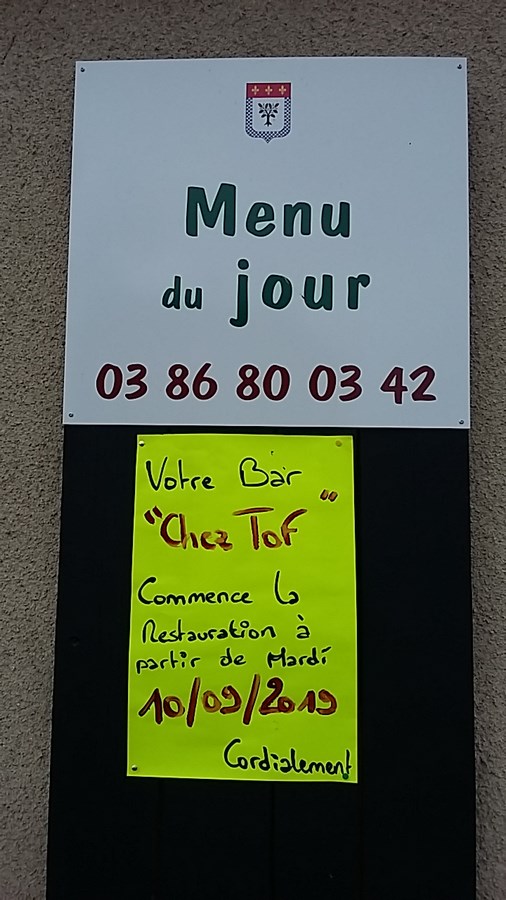 Menu
du jour
03 86 80 03 42
Votre Bar
"Chez Tof"
Commence la
Restauration à
partir de Mardi
10/09/2019
Cordialement